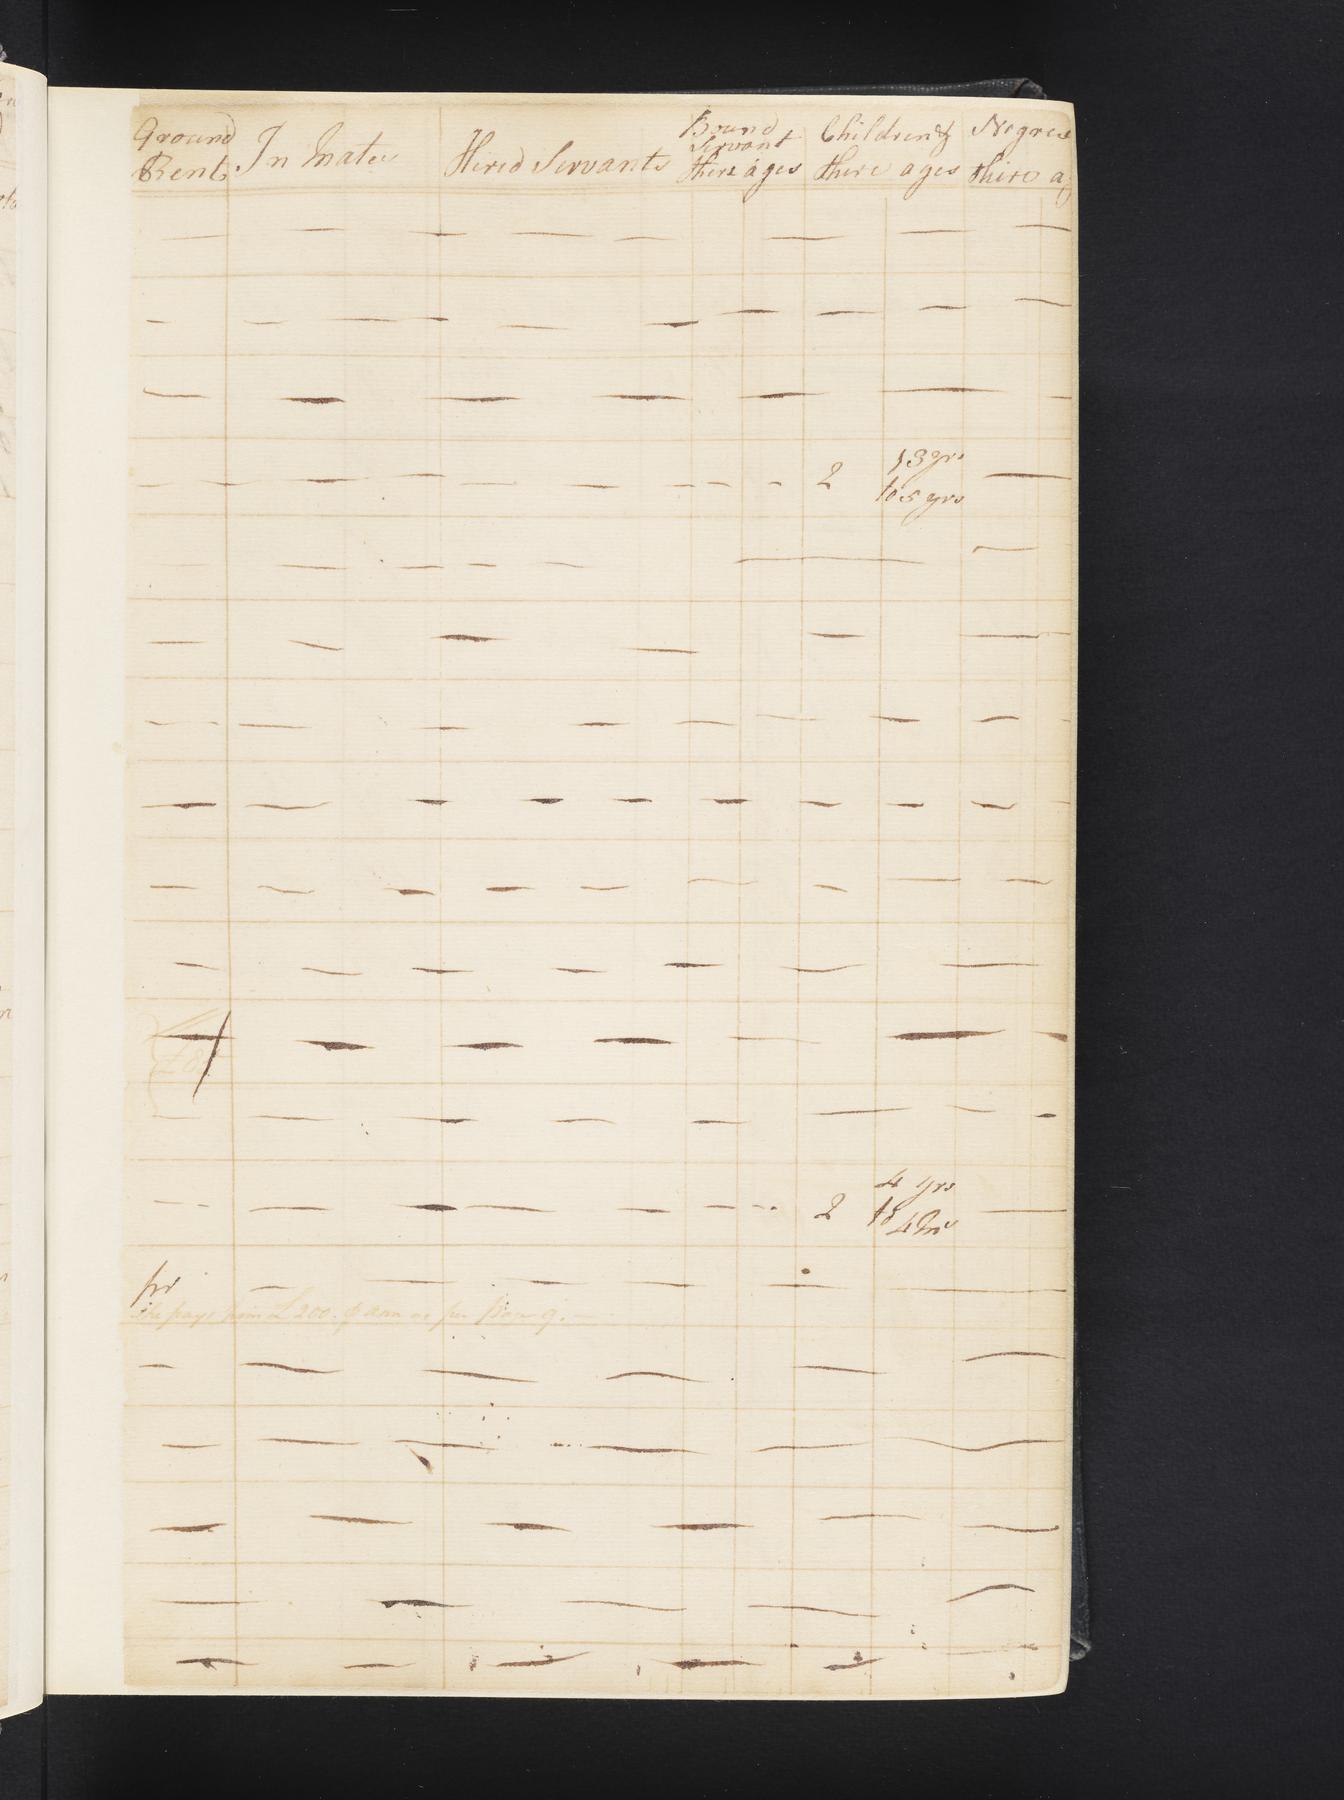 Ground Rent
In Mates
Hired Servants
Bound Servant there ages
Children & there ages
Negroes there ag
2 13 yrs
to 5 yrs
£8
2 4 yrs
to 4 Mo
pd
He pays him £200. p ann as per Pap 9. —